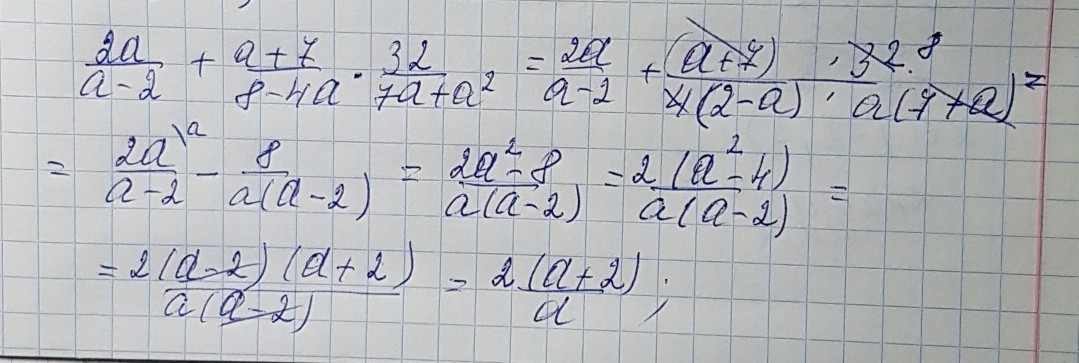 2a/(a-2) + (a+7)/(8-4a) · 32/(7a+a²) = 2a/(a-2) + (a+7) · 32 8/(4(2-a) · a(7+a)) =
= 2a\a/(a-2) - 8/(a(a-2)) = (2a²-8)/(a(a-2)) = 2(a²-4)/(a(a-2)) =
= 2(a-2)(a+2)/(a(a-2)) = 2(a+2)/a ;